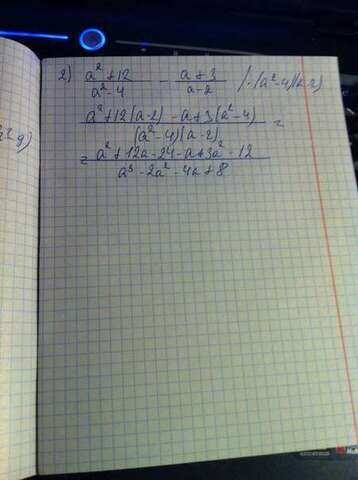 2) a²+12/a²-4 - a+3/a-2 /·(a²-4)(a-2)
a²+12(a-2) - a+3(a²-4)/(a²-4)(a-2) =
= a²+12a-24-a+3a²-12/a³-2a²-4a+8